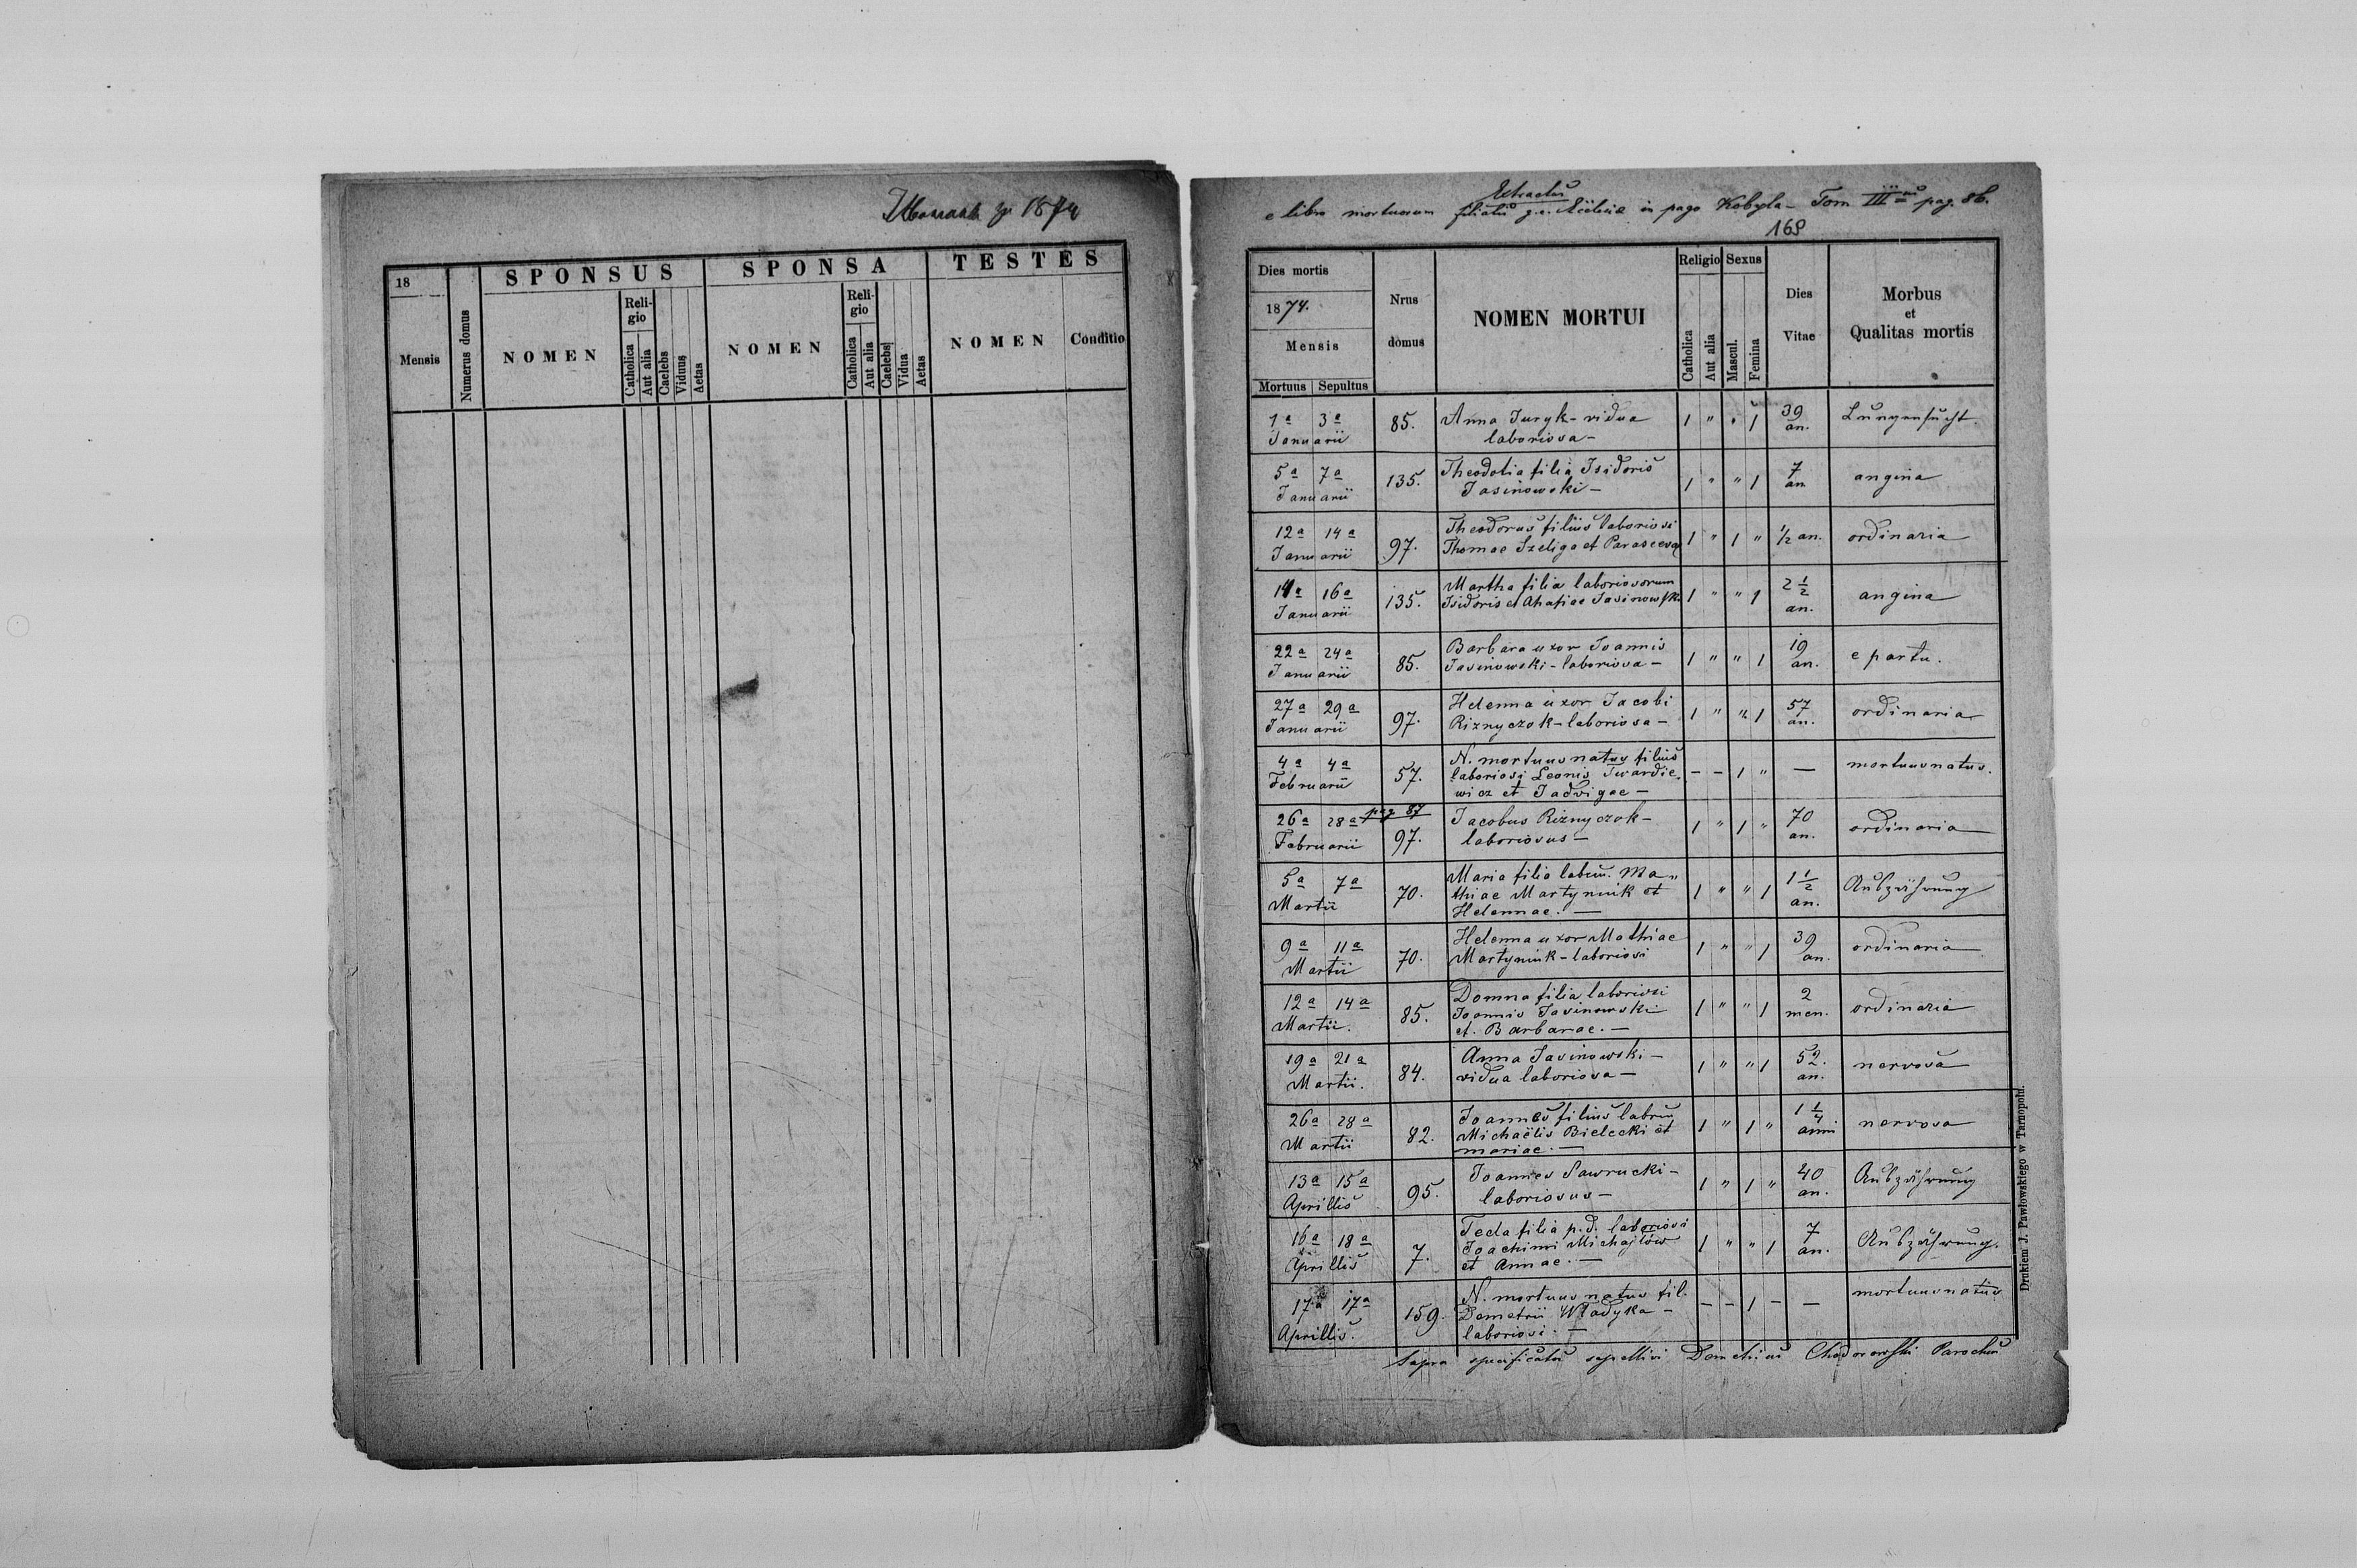 1874
18
Mensis
Numerus domus
SPONSUS
NOMEN
Religio
Catholica
Aut alia
Caelebs
Viduus
Aetas
SPONSA
NOMEN
Religio
Catholica
Aut alia
Caelebs
Vidua
Aetas
TESTES
NOMEN
Conditio
Extractus
e libro mortuorum filialis g.c. Ecclesiae in pago Kobyla - Tom III pag. 86.
169
Dies mortis
1874.
Mensis
Mortuus Sepultus
Nrus domus
NOMEN MORTUI
Religio
Catholica
Aut alia
Sexus
Mascul.
Femina
Dies Vitae
Morbus
et
Qualitas mortis
1a 3a 85. Anna Juryk - vidua 1 " " 1 39 Lungensucht.
Januarii laboriosa - an.
5a 7a 135. Theodotia filia Isidoris 1 " " 1 7 angina
Januarii Jasinowski - an
12a 14a Theodorus filius laboriosi
Januarii 97. Thomae Szeliga et Parascevae 1 " 1 " 1/2 an. ordinaria
14a 16a 135. Martha filia laboriosorum 1 " " 1 2 1/2 angina
Januarii Isidoris et Ahafiae Jasinowski an.
22a 24a 85. Barbara uxor Joannis 1 " " 1 19 e partu.
Januarii Jasinowski - laboriosa - an.
27a 29a 97. Helenna uxor Jacobi 1 " " 1 57 ordinaria
Januarii Riznyczok - laboriosa - an.
4a 4a 57. N. mortuus natus filius - - 1 " — mortuus natus.
Februarii laboriosi Leonis Twardie
wicz et Jadvigae -
pag 87
26a 28a 97. Jacobus Riznyczok - 1 " 1 " 70 ordinaria
Februarii laboriosus - an.
5a 7a 70. Maria filia labrum. Ma" 1 " " 1 1 1/2 Auszährung
Martii thiae Martyniuk et an.
Helennae. —
9a 11a 70. Helenna uxor Mathiae 1 " " 1 39 ordinaria
Martii Martyniuk - laboriosi an.
12a 14a 85. Domna filia laboriosi 1 " " 1 2 ordinaria
Martii. Joannis Jasinowski men.
et. Barbarae. —
19a 21a 84. Anna Jasinowski - 1 " " 1 52. nervosa
Martii. vidua laboriosa - an.
26a 28a 82. Joannes filius labrum 1 " 1 " 1 1/4 nervosa
Martii Michaëlis Bielecki et anni
mariae. —
13a 15a 95. Joannes Sawrucki - 1 " 1 " 40 Auszährung
Aprillis laboriosus - an.
16a 18a 7. Tecla filia p.d. laboriosi 1 " " 1 7 Auszährung.
Aprillis Joachimi Michajlów an.
et Annae. —
17a 17a 159. N. mortuus natus fil. - - 1 - — mortuus natus
Aprillis. Demetrii Władyka -
laboriosi. —
Supra specificatos sepellivi Demetrius Chodorowski Parochus
Drukiem J. Pawłowskiego w Tarnopolu.